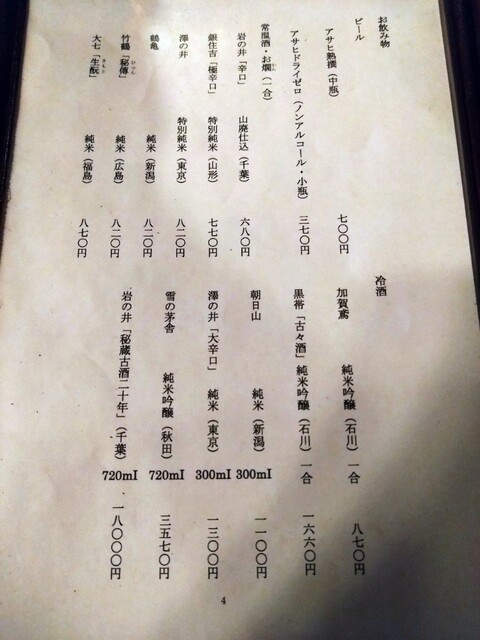 お飲み物
ビール
アサヒ熟撰(中瓶) 七〇〇円
アサヒドライゼロ(ノンアルコール・小瓶) 三七〇円
常温酒・お燗(一合)
岩の井「辛口」 山廃仕込(千葉) 六八〇円
銀住吉「極辛口」 特別純米(山形) 七七〇円
澤の井 特別純米(東京) 八二〇円
鶴亀 純米(新潟) 八二〇円
竹鶴「秘傳」 純米(広島) 八二〇円
大七「生酛」 純米(福島) 八七〇円
冷酒
加賀鳶 純米吟醸(石川) 一合 八七〇円
黒帯「古々酒」 純米吟醸(石川) 一合 一六六〇円
朝日山 純米(新潟) 300ml 一一〇〇円
澤の井「大辛口」 純米(東京) 300ml 一三〇〇円
雪の茅舎 純米吟醸(秋田) 720ml 三五七〇円
岩の井「秘蔵古酒二十年」(千葉) 720ml 一八〇〇〇円
4